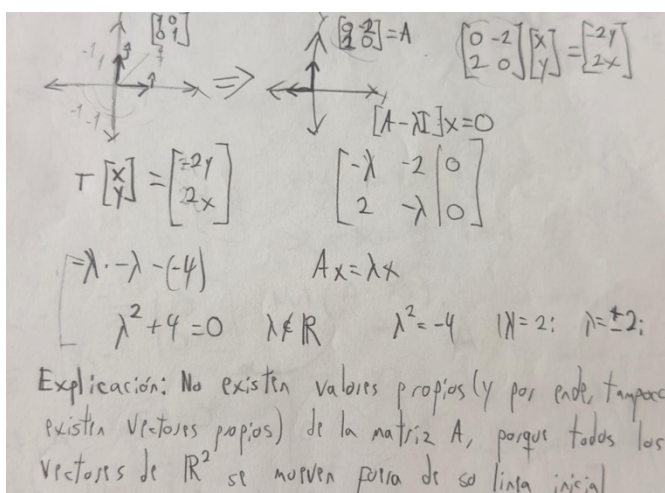 [1 0
0 1]
⇒
[0 -2
2 0] = A
[0 -2
2 0] [x
y] = [-2y
2x]
[A-λI]x=0
T [x
y] = [-2y
2x]
[-λ -2 | 0
2 -λ | 0]
-λ · -λ - (-4)
Ax=λx
λ²+4=0 λ∉ℝ λ²=-4 |λ|=2; λ=±2i
Explicación: No existen valores propios (y por ende, tampoco
existen vectores propios) de la matriz A, porque todos los
vectores de ℝ² se mueven fuera de su linea inicial